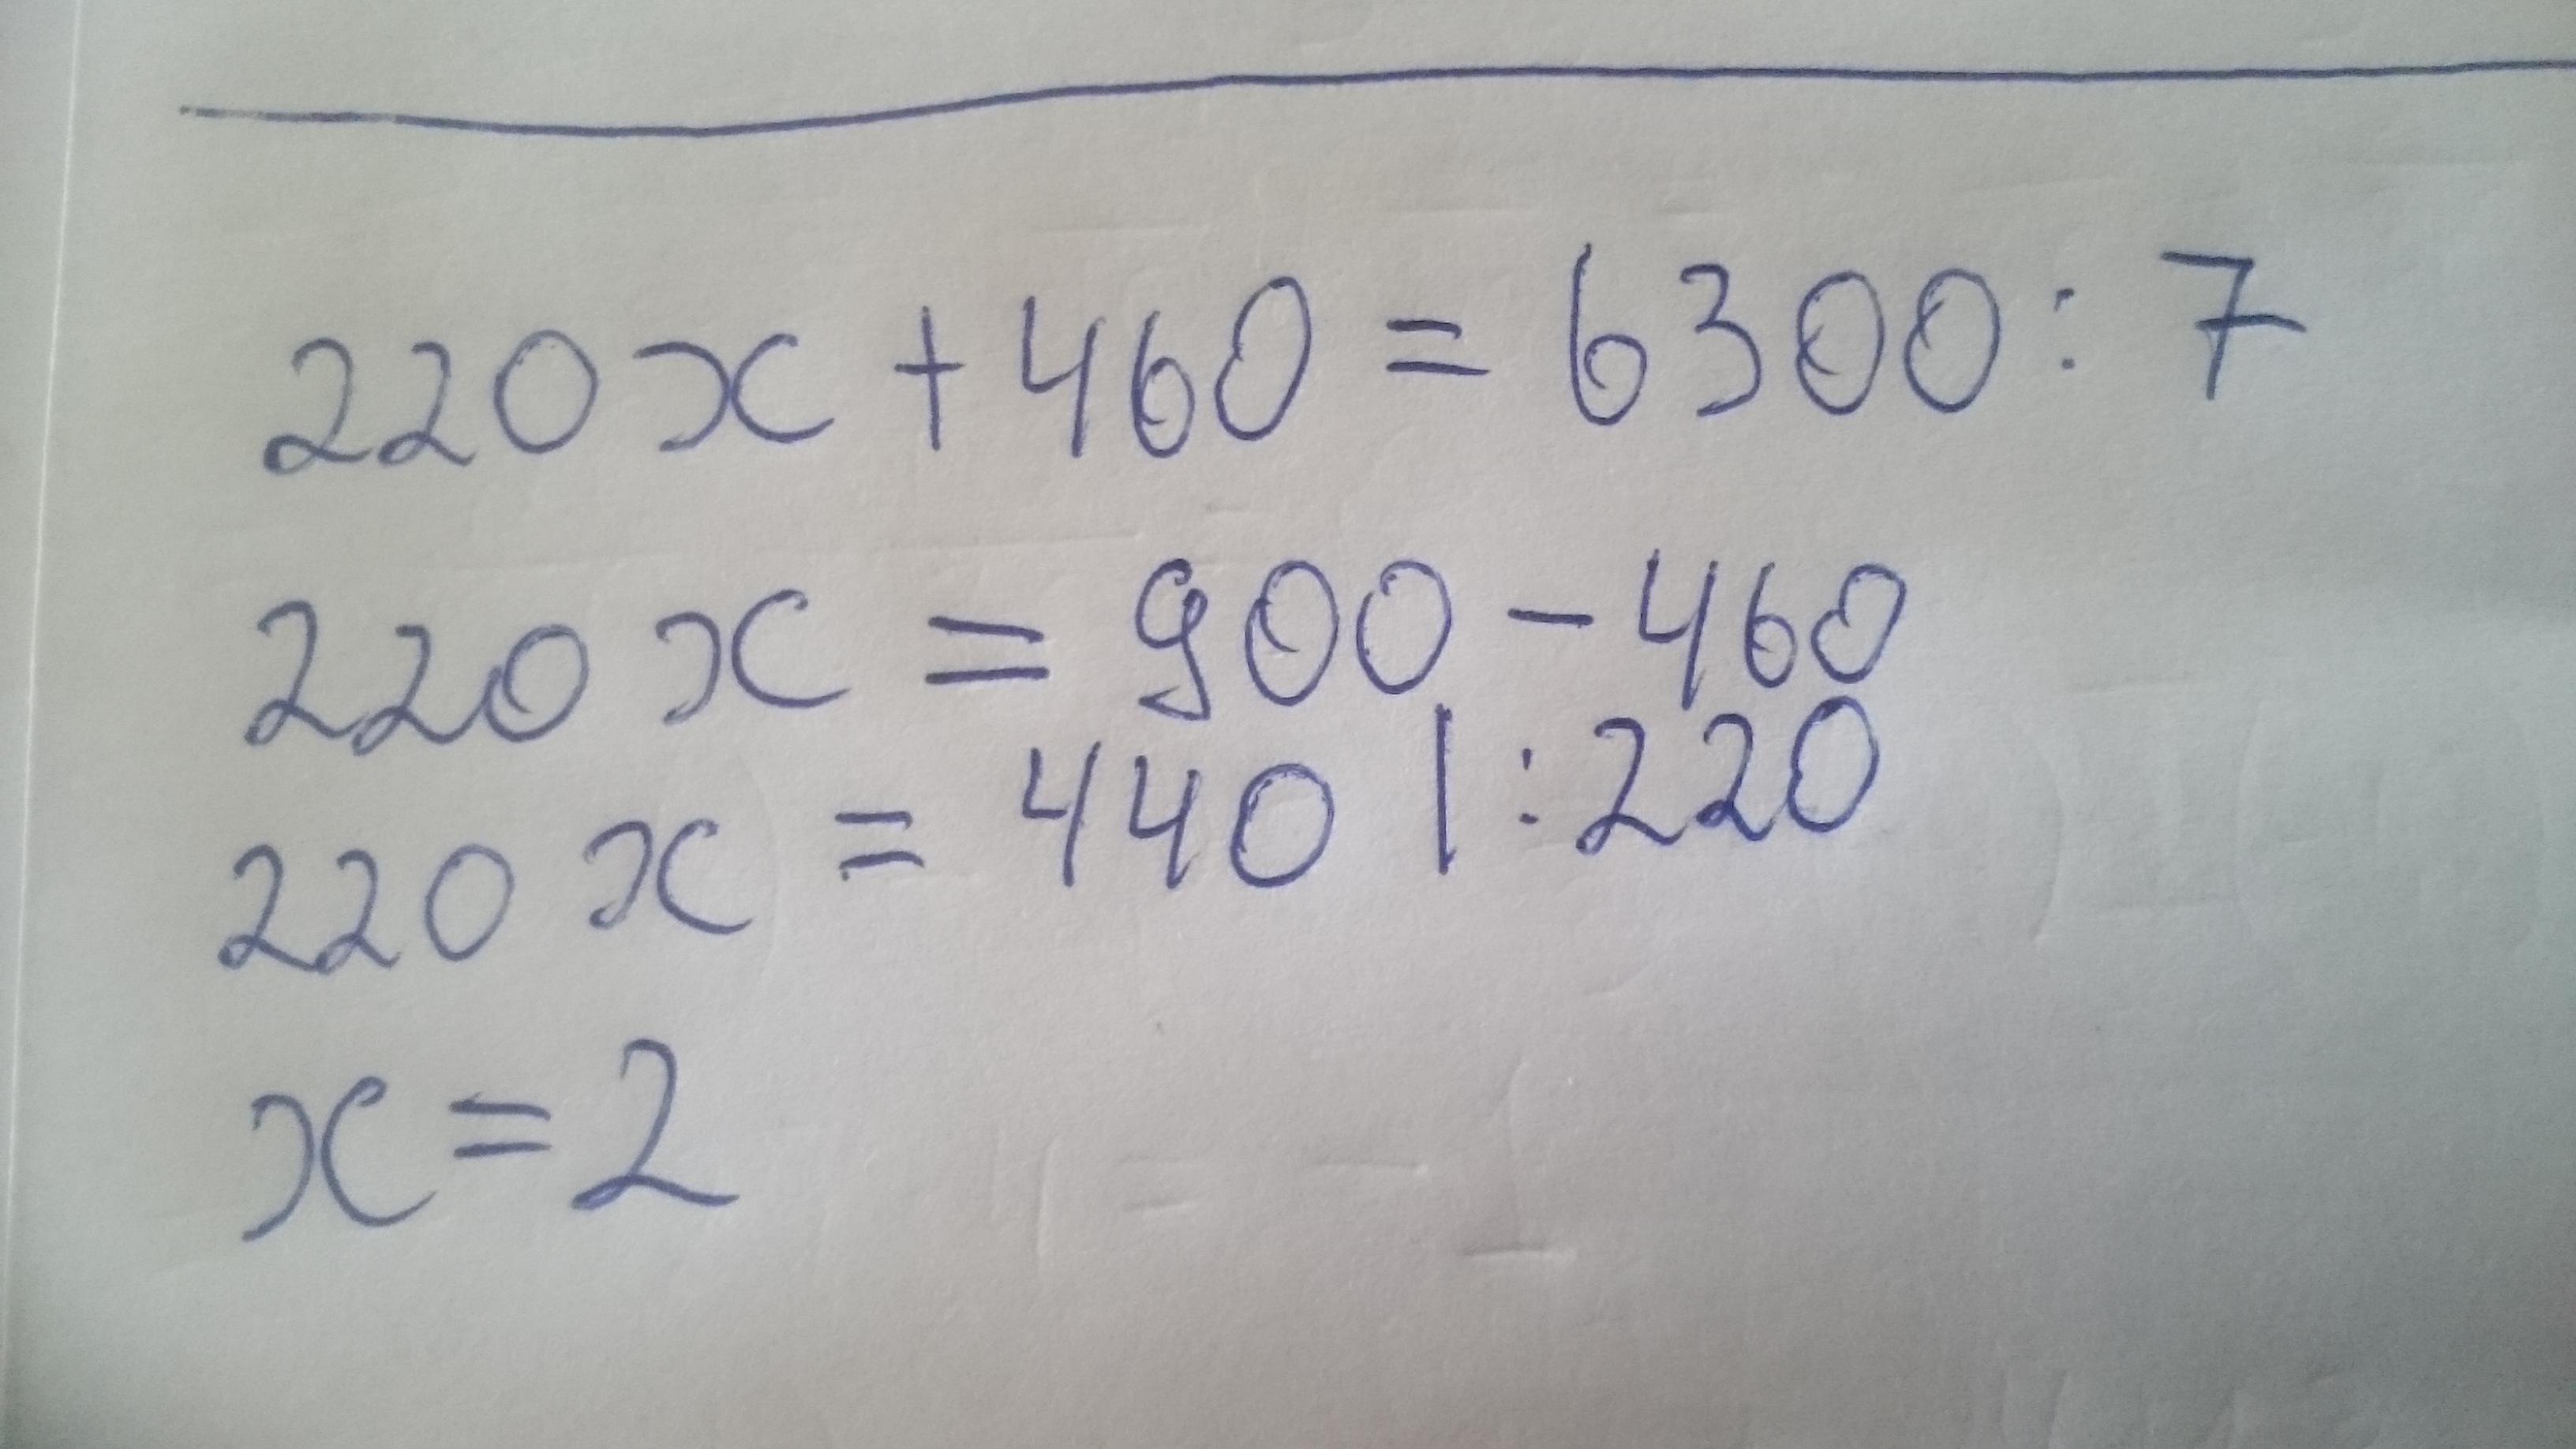 220x + 460 = 6300 : 7
220x = 900 - 460
220x = 440 | : 220
x = 2